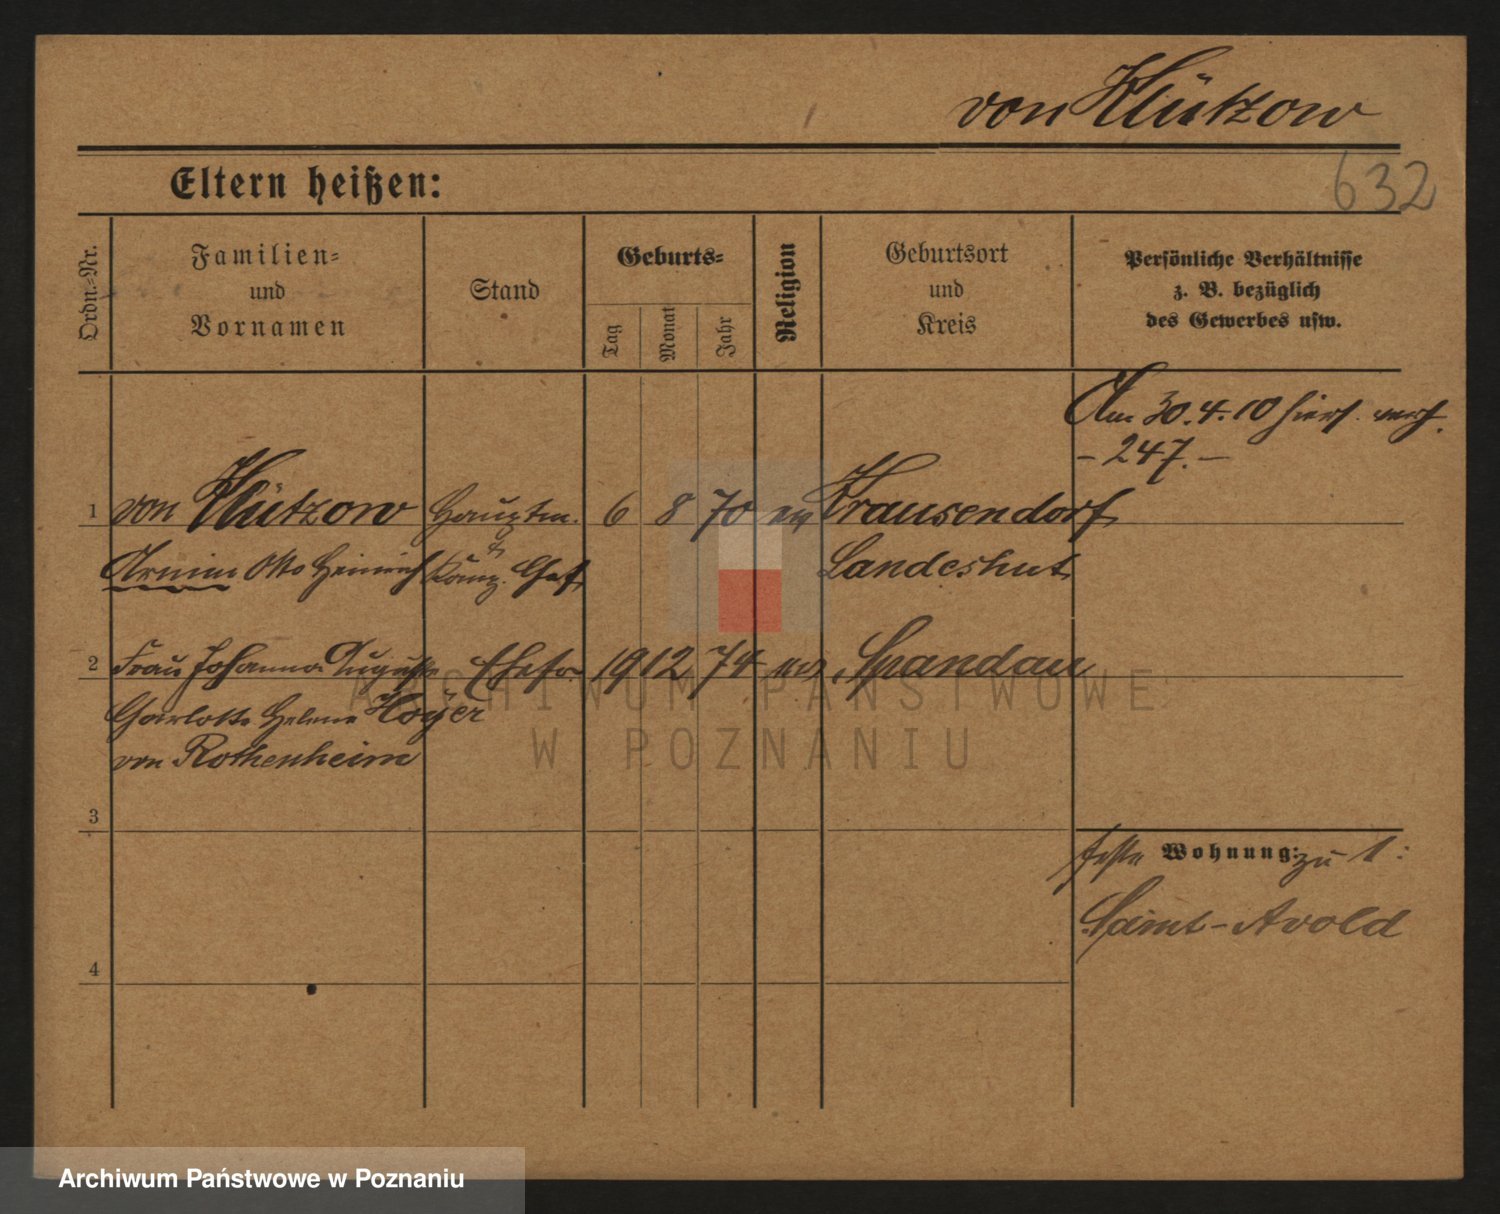 von Klützow
632
Eltern heißen:
Ordn.-Nr.
Familien-
und
Vornamen
Stand
Geburts-
Tag
Monat
Jahr
Religion
Geburtsort
und
Kreis
Persönliche Verhältnisse
z. B. bezüglich
des Gewerbes usw.
Am 30.4.10 hiers. verh.
- 247. -
1 von Klützow Hauptm. 6 8 70 ev Krausendorf
Armin Otto Heinrich Komp. Chef Landeshut
2 Frau Johanna Auguste Ehefr 19 12 74 ev Spandau
Charlotte Helene Hoyer
von Rothenheim
3
feste Wohnung: zu 1:
Saint-Avold
4
ARCHIWUM PAŃSTWOWE
W POZNANIU
Archiwum Państwowe w Poznaniu